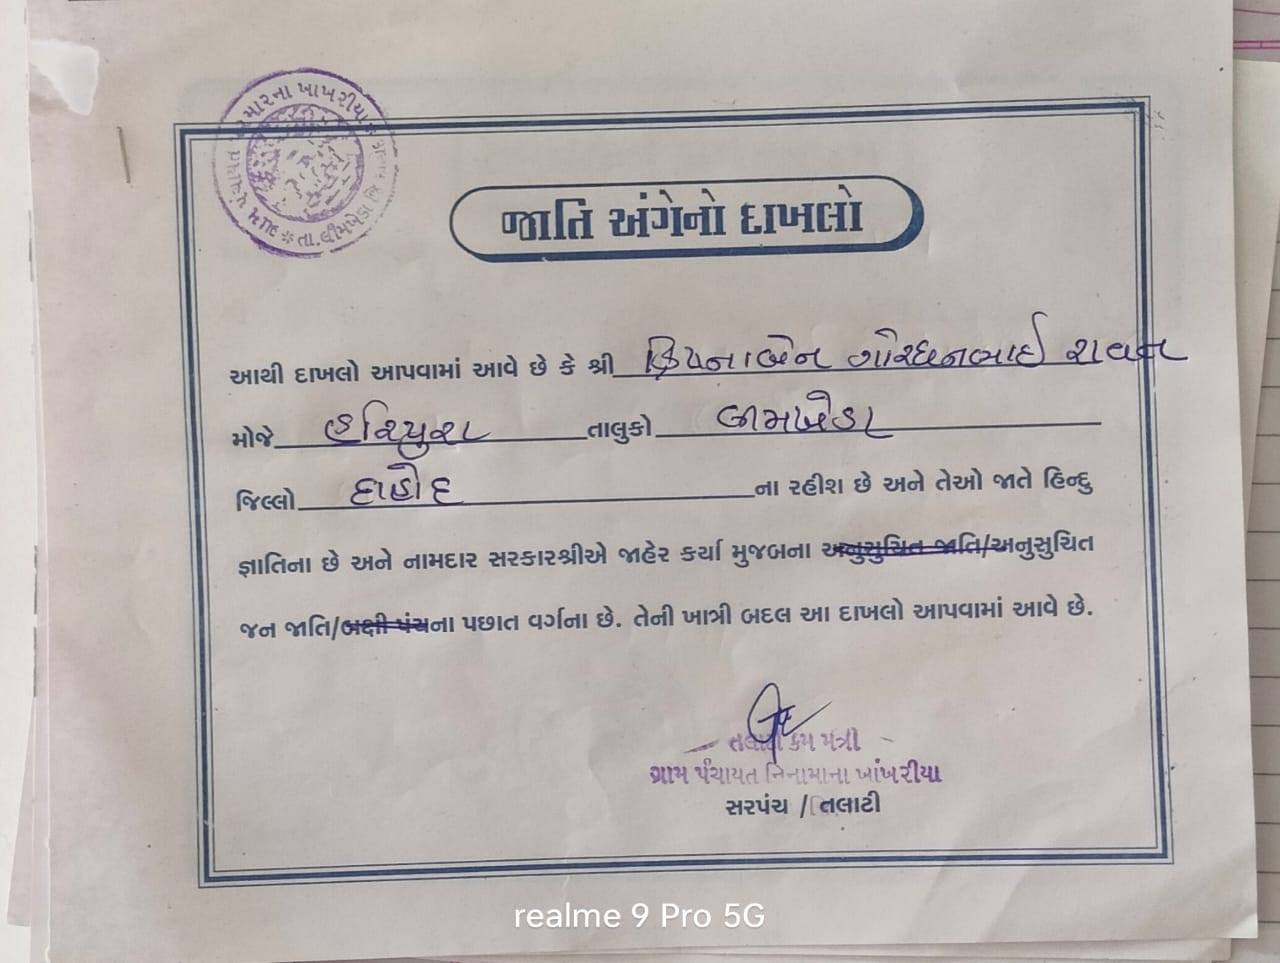 ખાખરીયા
તા.લીમખેડા
જાતિ અંગેનો દાખલો
આથી દાખલો આપવામાં આવે છે કે શ્રી ગોરધનભાઈ રાવત
મોજે તાલુકો લીમખેડા
જિલ્લો દાહોદ ના રહીશ છે અને તેઓ જાતે હિન્દુ
જ્ઞાતિના છે અને નામદાર સરકારશ્રીએ જાહેર કર્યા મુજબના અનુસુચિત જાતિ/અનુસુચિત
જન જાતિ/બક્ષી પંચના પછાત વર્ગના છે. તેની ખાત્રી બદલ આ દાખલો આપવામાં આવે છે.
તલાટી કમ મંત્રી
ગ્રામ પંચાયત નિનામાના ખાંખરીયા
સરપંચ / તલાટી
realme 9 Pro 5G